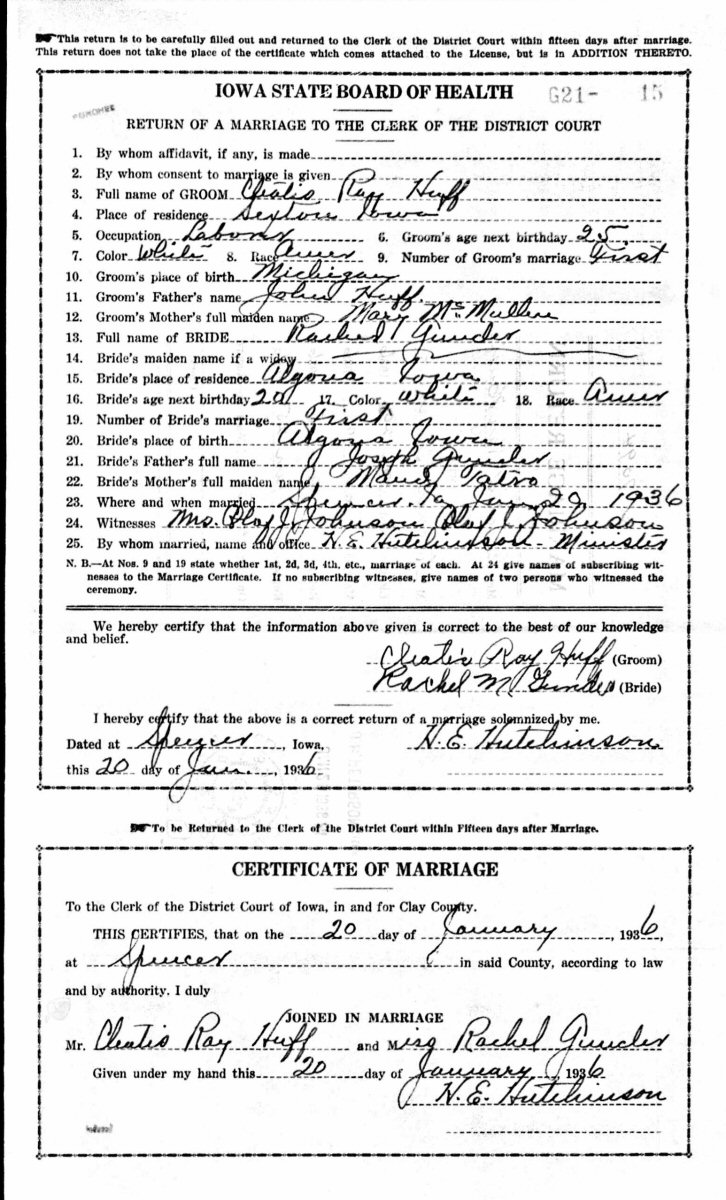 This return is to be carefully filled out and returned to the Clerk of the District Court within fifteen days after marriage.
This return does not take the place of the certificate which comes attached to the License, but is in ADDITION THERETO.
IOWA STATE BOARD OF HEALTH G21- 15
RETURN OF A MARRIAGE TO THE CLERK OF THE DISTRICT COURT
1. By whom affidavit, if any, is made
2. By whom consent to marriage is given
3. Full name of GROOM Cleatis Ray Huff
4. Place of residence Sexton Iowa
5. Occupation Labour 6. Groom's age next birthday 25
7. Color White 8. Race Amer 9. Number of Groom's marriage First
10. Groom's place of birth Michigan
11. Groom's Father's name John Huff
12. Groom's Mother's full maiden name Mary McMullen
13. Full name of BRIDE Rachel Gunder
14. Bride's maiden name if a widow
15. Bride's place of residence Algona Iowa
16. Bride's age next birthday 20 17. Color White 18. Race Amer
19. Number of Bride's marriage First
20. Bride's place of birth Algona Iowa
21. Bride's Father's full name Joseph Gunder
22. Bride's Mother's full maiden name
23. Where and when married Spencer, Ia Jan 20 1936
24. Witnesses Mrs. Olaf J Johnson Olaf J Johnson
25. By whom married, name and office H. E. Hutchinson - Minister
N. B.—At Nos. 9 and 19 state whether 1st, 2d, 3d, 4th, etc., marriage of each. At 24 give names of subscribing wit-
nesses to the Marriage Certificate. If no subscribing witnesses, give names of two persons who witnessed the
ceremony.
We hereby certify that the information above given is correct to the best of our knowledge
and belief.
Cleatis Ray Huff (Groom)
Rachel M Gunder (Bride)
I hereby certify that the above is a correct return of a marriage solemnized by me.
Dated at Spencer, Iowa, H. E. Hutchinson
this 20 day of Jan., 1936
To be Returned to the Clerk of the District Court within Fifteen days after Marriage.
CERTIFICATE OF MARRIAGE
To the Clerk of the District Court of Iowa, in and for Clay County.
THIS CERTIFIES, that on the 20 day of January, 1936,
at Spencer in said County, according to law
and by authority. I duly
JOINED IN MARRIAGE
Mr. Cleatis Ray Huff and Miss Rachel Gunder
Given under my hand this 20 day of January 1936
H. E. Hutchinson